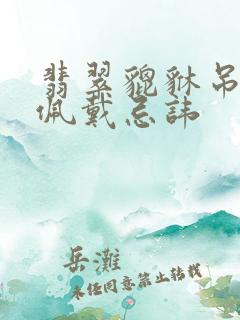 翡翠貔貅吊
佩戴忌諱
岳灘
未经同意禁止转载